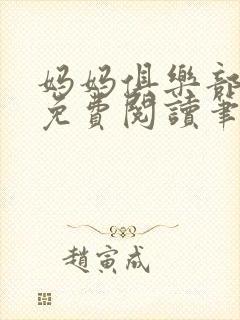 妈妈俱樂部
免費閱讀筆
趙寅成